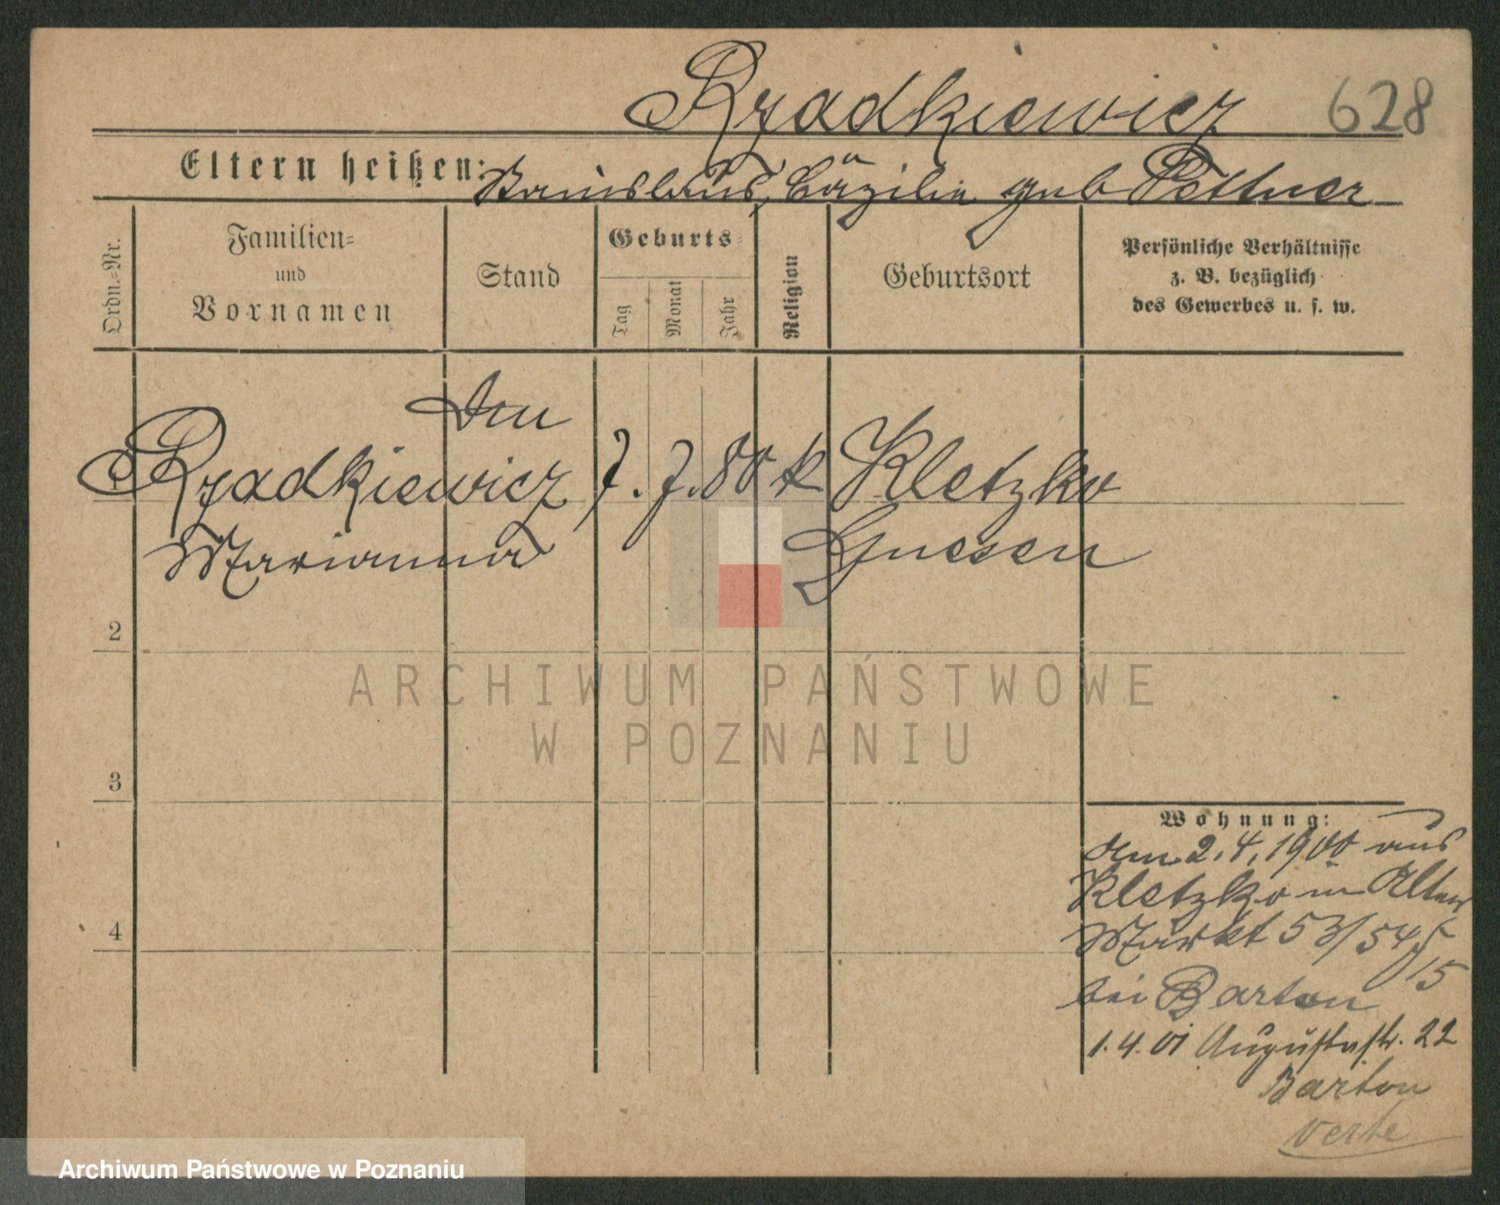 Rzadkiewicz 628
Eltern heißen: Stanislaus, Cäzilie geb Pettner
Ordn.=Nr.
Familien=
und
Vornamen
Stand
Geburts=
Tag
Monat
Jahr
Religion
Geburtsort
Persönliche Verhältnisse
z. B. bezüglich
des Gewerbes u. s. w.
Rzadkiewicz 7. 7. 80 k Kletzko
Marianna Gnesen
2
3
4
ARCHIWUM PAŃSTWOWE
W POZNANIU
Wohnung:
am 2.4.1900 aus
Kletzko in Alten
Markt 53/54
15
bei Barton
1.4.01 Augustastr. 22
Barton
verte
Archiwum Państwowe w Poznaniu